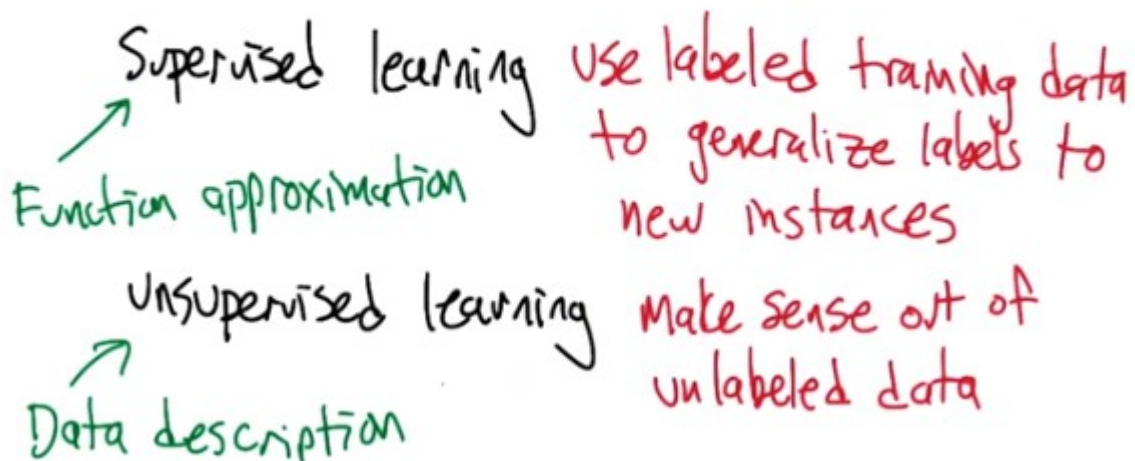 Supervised learning use labeled training data
to generalize labels to
Function approximation
new instances
unsupervised learning make sense out of
unlabeled data
Data description